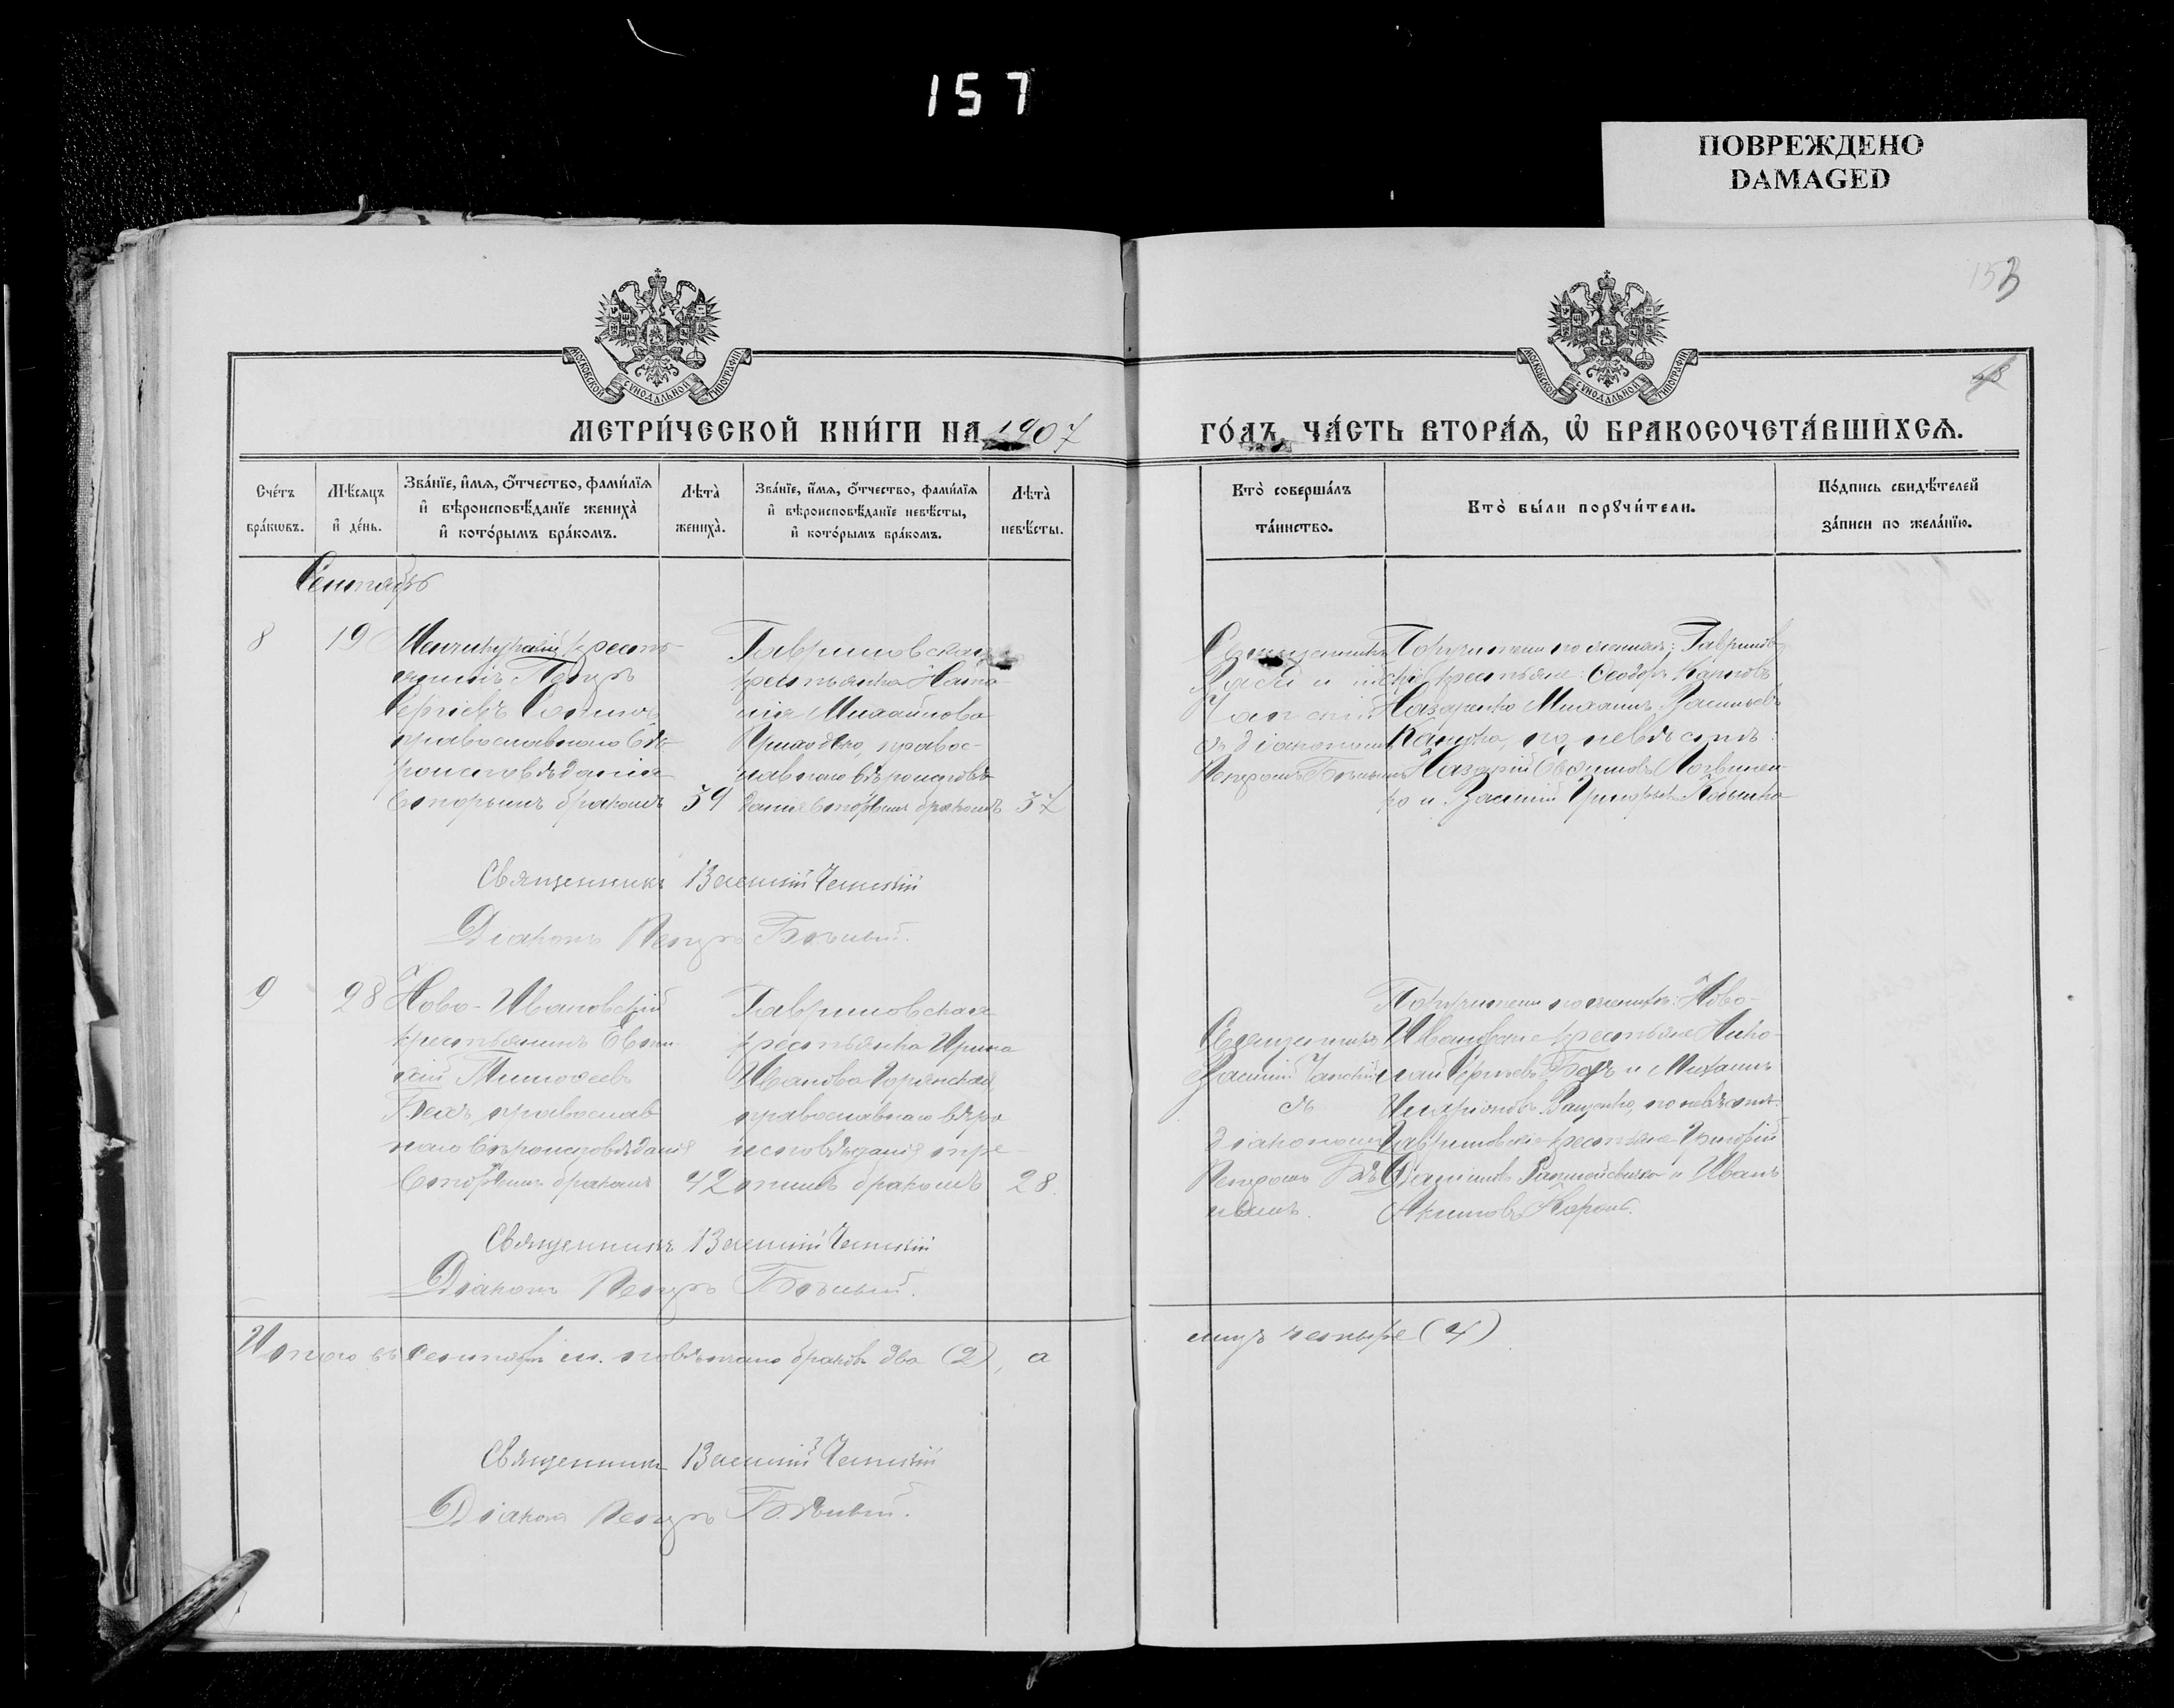 157
ПОВРЕЖДЕНО
DAMAGED
153
МОСКОВСКОЙ СѴНОДАЛЬНОЙ ТИПОГРАФІИ
МОСКОВСКОЙ СѴНОДАЛЬНОЙ ТИПОГРАФІИ
МЕТРИ́ЧЕСКОЙ КНИ́ГИ НА 1907
ГО́ДЪ, ЧА́СТЬ ВТОРА́Я, Ѡ БРАКОСОЧЕТА́ВШИХСЯ.
Сче́тъ бра́кѡвъ.
Мѣ́сяцъ и҆ де́нь.
Зва́нїе, и҆́мя, ѻ҆́тчество, фами́лїя
и҆ вѣроисповѣ́данїе жениха̀
и҆ кото́рымъ бра́комъ.
Лѣта̀ жениха̀.
Зва́нїе, и҆́мя, ѻ҆́тчество, фами́лїя
и҆ вѣроисповѣ́данїе невѣ́сты,
и҆ кото́рымъ бра́комъ.
Лѣта̀ невѣ́сты.
Кто̀ соверша́лъ
та́инство.
Кто̀ бы́ли порꙋчи́тели.
По́дпись свидѣ́телей
за́писи по жела́нїю.
Сентябрь
8
19
крестья
нинъ Петръ
Сергіевъ
православнаго вѣ
роисповѣданія
вторымъ бракомъ
59
Гавриловская
крестьянка Ната
лія Михайлова
Приходько, правос-
лавнаго вѣроисповѣ
данія вторымъ бракомъ
57
Священникъ
Василій
Чапскій
съ діакономъ
Петромъ
Поручители по женихѣ: Гаврилов
скіе крестьяне: Ѳеодоръ Карповъ
Назаренко Михаилъ Васильевъ
по невѣстѣ:
Назарій Евѳимовъ Логвинен
ко и Василій Григорьевъ
Священникъ Василій Чапскій
Діаконъ Петръ
9
28
Ново-Ивановскій
крестьянинъ Евти
хій Тимоѳеевъ
Бехъ, православ
наго вѣроисповѣданія
вторымъ бракомъ
42
Гавриловская
крестьянка Ирина
Иванова Горянская,
православнаго вѣро
исповѣданія пре
тимъ бракомъ
28.
Священникъ
Василій Чапскій
съ
діакономъ
Петромъ
Поручители по женихѣ: Ново-
Ивановскіе крестьяне Нико-
лай Сергѣевъ Бехъ и Михаилъ
Иларіоновъ Ващенко, по невѣстѣ:
Гавриловскіе крестьяне Григорій
и Иванъ
Акимовъ
Священникъ Василій Чапскій
Діаконъ Петръ
Итого въ Сентябрѣ м. повѣнчано браковъ два (2), а
лицъ четыре (4)
Священникъ Василій Чапскій
Діаконъ Петръ